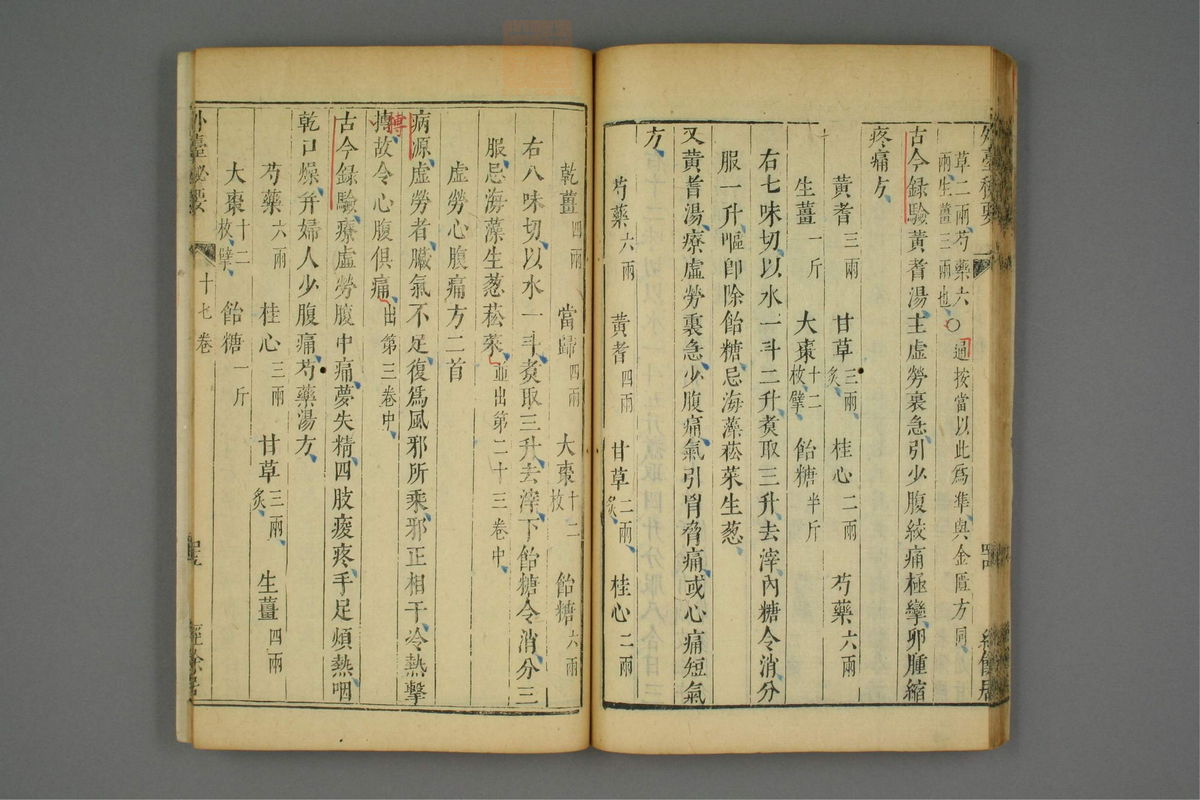 外臺秘要
草二兩芍藥六
兩生薑三兩也
○通按當以此為準與金匱方同
古今錄驗黃耆湯主虛勞裏急引少腹絞痛極攣卵腫縮
疼痛方
黃耆三兩 甘草三兩炙 桂心二兩 芍藥六兩
生薑一斤 大棗十二枚擘 飴糖半斤
右七味切以水一斗二升煑取三升去滓內糖令消分
服一升嘔卽除飴糖忌海藻菘菜生葱
又黃耆湯療虛勞裏急少腹痛氣引胷脅痛或心痛短氣
方
芍藥六兩 黃耆四兩 甘草二兩炙 桂心二兩
乾薑四兩 當歸四兩 大棗十二枚 飴糖六兩
右八味切以水一斗煑取三升去滓下飴糖令消分三
服忌海藻生葱菘菜並出第二十三卷中
虛勞心腹痛方二首
病源虛勞者臟氣不足復爲風邪所乘邪正相干冷熱擊
搏故令心腹俱痛出第三卷中
古今錄驗療虛勞腹中痛夢失精四肢痠疼手足煩熱咽
乾口燥幷婦人少腹痛芍藥湯方
芍藥六兩 桂心三兩 甘草三兩炙 生薑四兩
大棗十二枚擘 飴糖一斤
外臺秘要 十七卷 經餘居